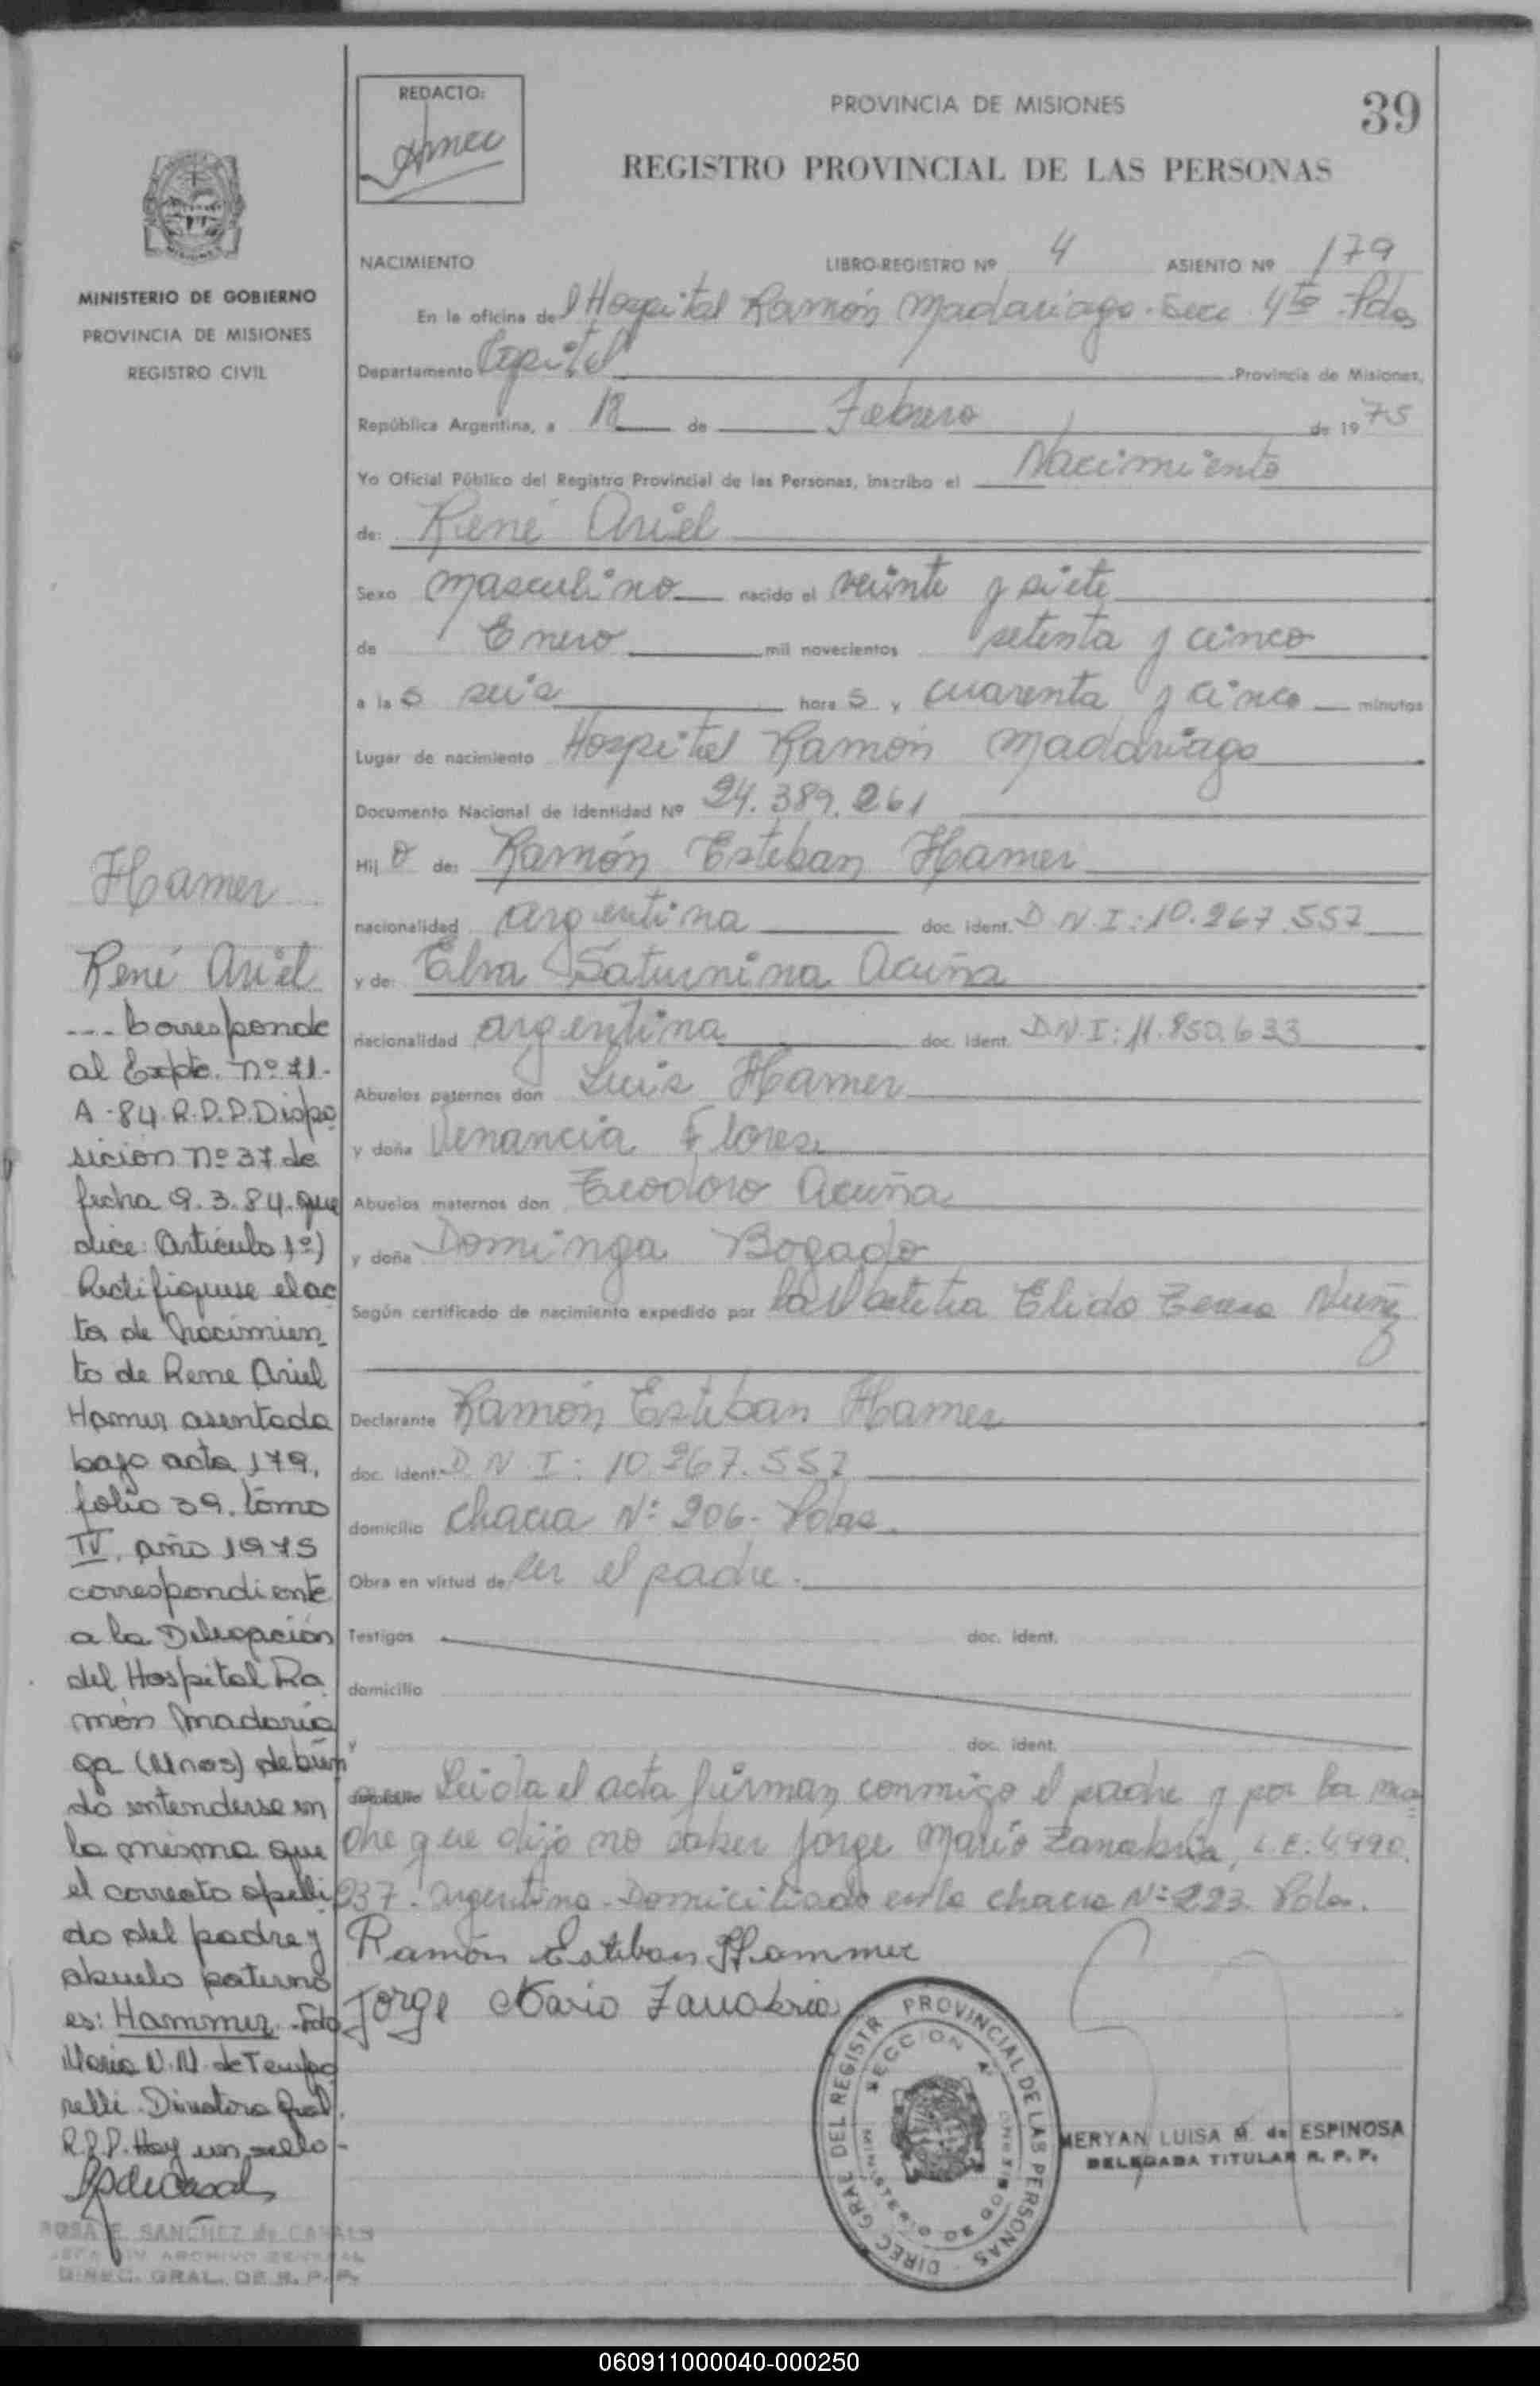 REDACTO:
PROVINCIA DE MISIONES
39
REGISTRO PROVINCIAL DE LAS PERSONAS
MINISTERIO DE GOBIERNO
PROVINCIA DE MISIONES
REGISTRO CIVIL
NACIMIENTO LIBRO-REGISTRO Nº 4 ASIENTO Nº 179
En la oficina del Hospital Ramón Madariaga - Secc. 4ta Pdas
Departamento Capital Provincia de Misiones,
República Argentina, a 12 de Febrero de 1975
Yo Oficial Público del Registro Provincial de las Personas, inscribo el Nacimiento
de: René Ariel
Sexo masculino nacido el veinte y siete
de Enero mil novecientos setenta y cinco
a las seis horas y cuarenta y cinco minutos
Lugar de nacimiento Hospital Ramón Madariaga
Documento Nacional de Identidad Nº 24.389.261
Hijo de: Ramón Esteban Hamer
nacionalidad argentina doc. ident. D.N.I: 10.267.557
y de: Elva Saturnina Acuña
nacionalidad argentina doc. ident. D.N.I: 11.850.633
Abuelos paternos don Luis Hamer
y doña Venancia Flores
Abuelos maternos don Teodoro Acuña
y doña Dominga Bogado
Según certificado de nacimiento expedido por la Partera Elida Nuñez
Declarante Ramón Esteban Hamer
doc. ident. D.N.I: 10.267.557
domicilio chacra Nº 206 - Pdas.
Obra en virtud de ser el padre.
Testigos doc. ident.
domicilio
y doc. ident.
domicilio Leida el acta firman conmigo el padre y por la ma
dre que dijo no saber Jorge Mario Zanabria, L.E: 4.990.
937. argentino - Domiciliado en la chacra Nº 223 Pdas.
Ramón Esteban Hammer
Jorge Mario Zanabria
Hamer
René Ariel
--- Corresponde
al Expte. nº 71-
A-84. R.P.P. Dispo
sición nº 37 de
fecha 9.3.84. que
dice: Artículo 1º)
Rectifiquese el ac
ta de Nacimien
to de Rene Ariel
Hamer asentada
bajo acta 179,
folio 39. tomo
IV. año 1975
correspondiente
a la Delegación
del Hospital Ra
món Madaria
ga (Mnes) debien
do entenderse en
la misma que
el correcto apelli
do del padre y
abuelo paterno
es: Hammer - Fdo
Maria N.M. de Tempo
relli. Directora Gral.
R.P.P. Hay un sello -
ROSA E. SANCHEZ de CANALS
ARCHIVO GENERAL
DIREC. GRAL. DE R. P. P.
DIREC GRAL DEL REGISTR PROVINCIAL DE LAS PERSONAS
SECCION 4ª
MINISTERIO DE GOBIERNO
MERYAN LUISA M. de ESPINOSA
DELEGADA TITULAR R. P. P.
060911000040-000250